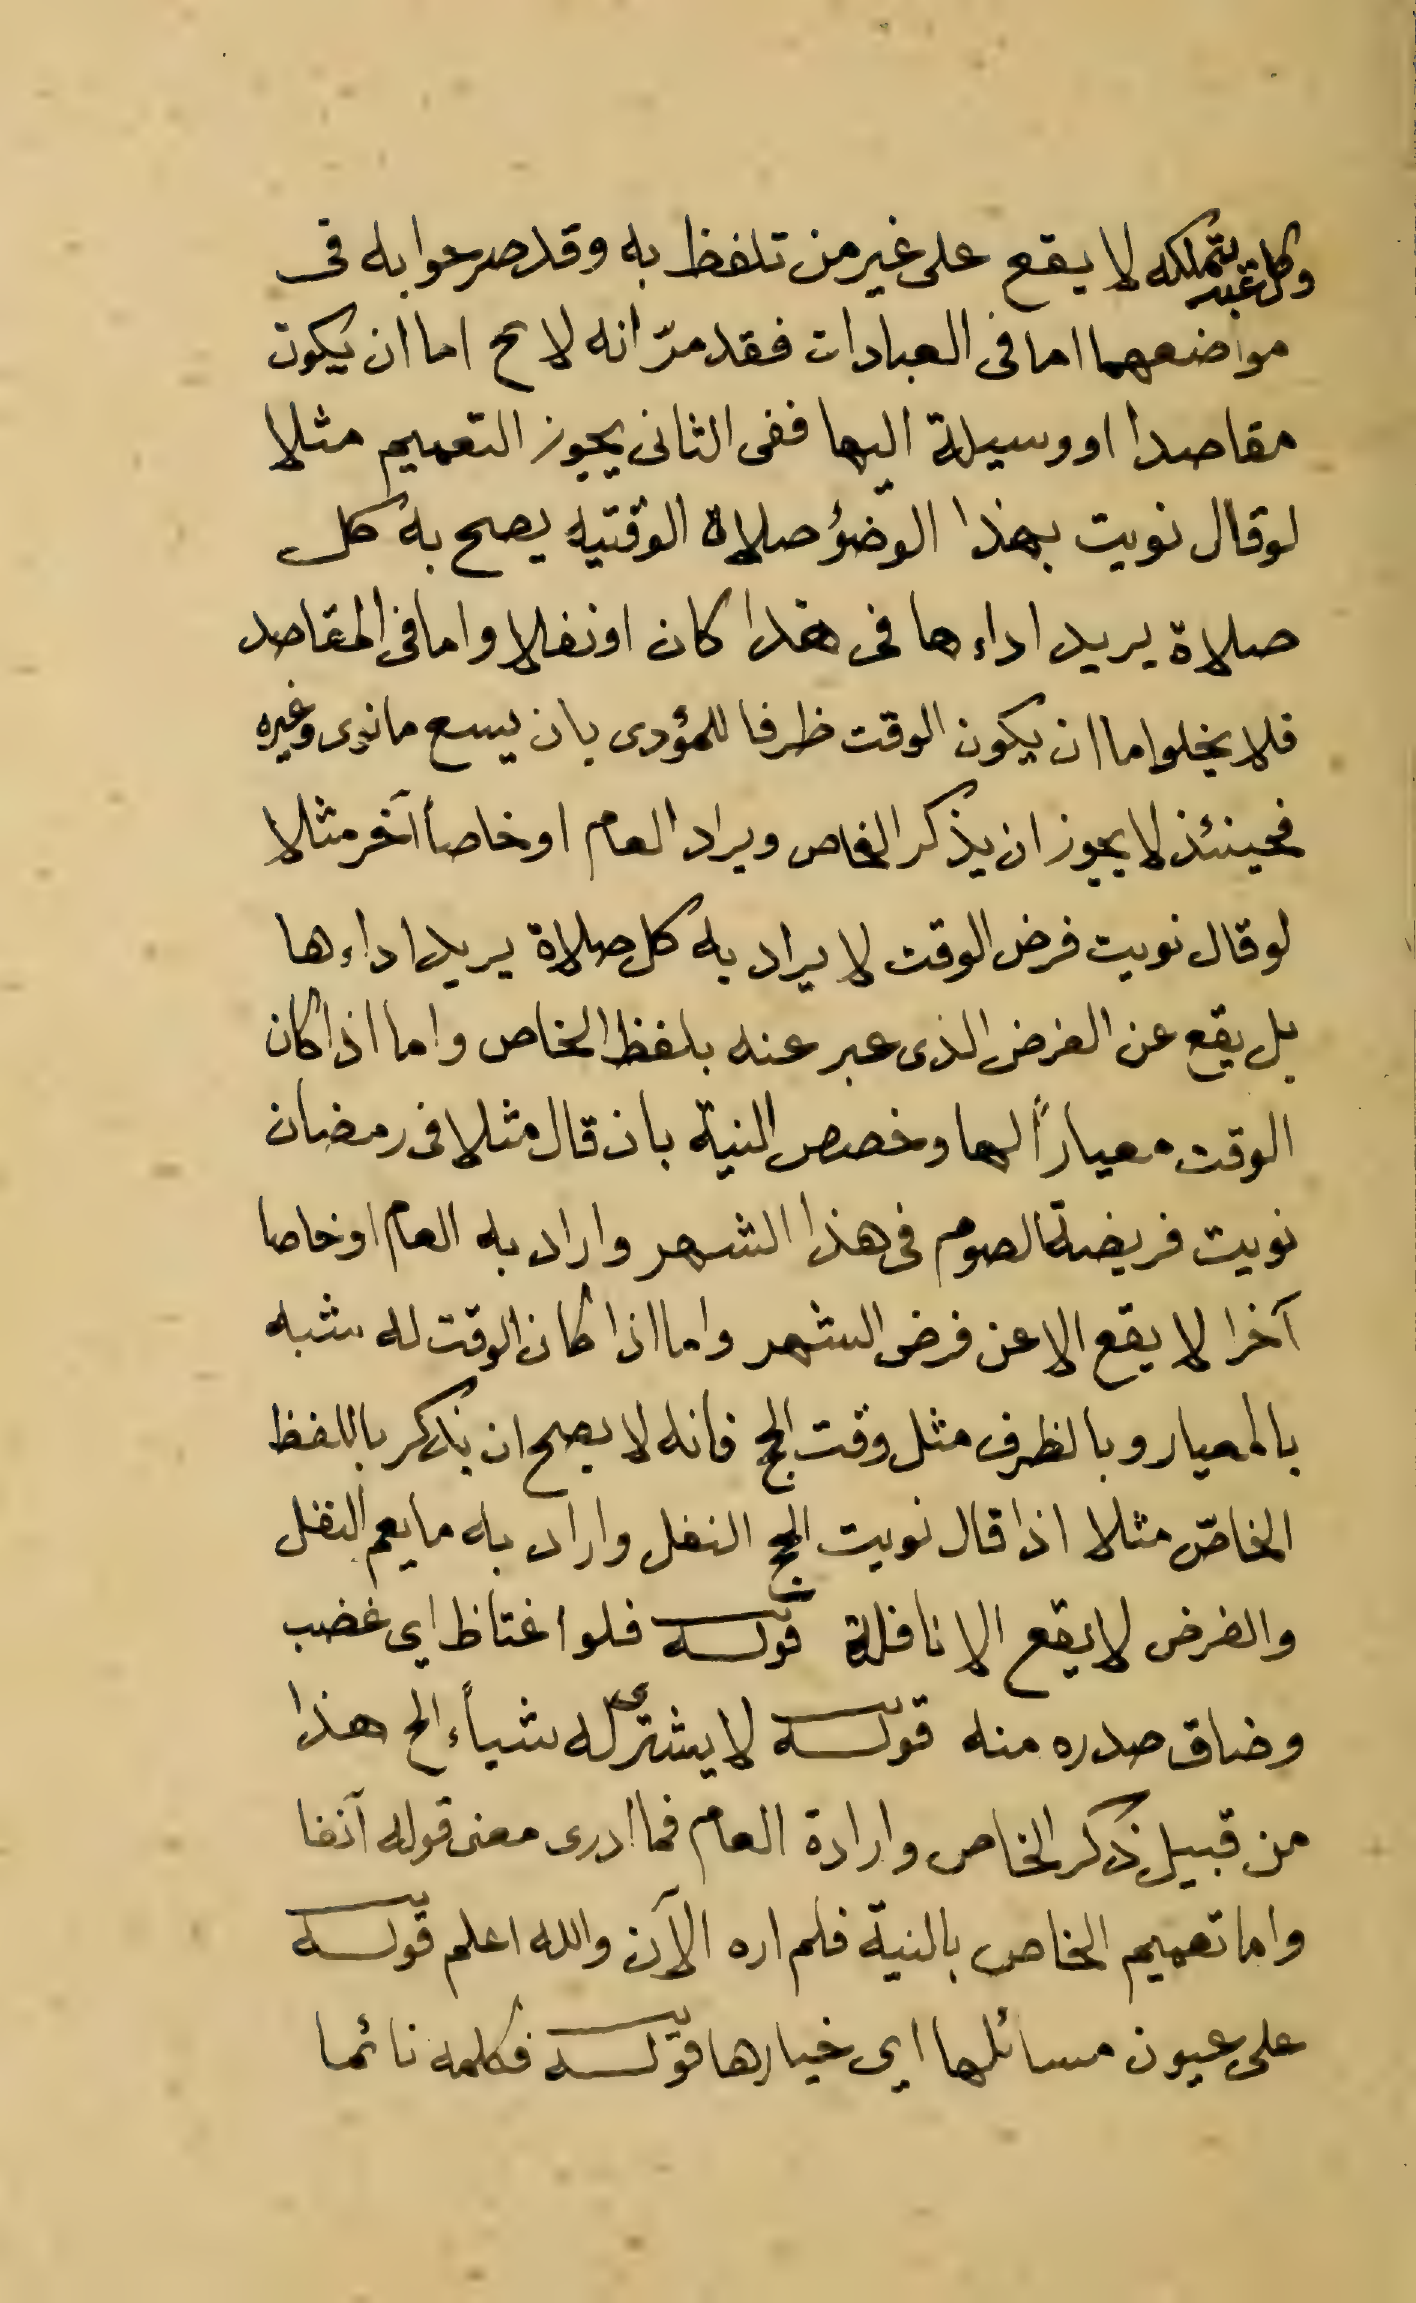 لا يقع على غير من تلفظ به وقد صرحوا به فى
مواضعهما اما فى العبادات فقد مرّ انه لا يح اما ان يكون
مقاصدا او وسيلة اليها ففى الثانى يجوز التعميم مثلا
لو قال نويت بهذا الوضؤ صلاة الوقتيه يصح به كل
صلاة يريد اداءها فى هذا كان او نفلا واما فى المقاصد
فلا يخلوا ما ان يكون الوقت ظرفا للمؤدى بان يسع ما نوى وغيره
فحينئذ لا يجوز ان يذكر الخاص ويراد العام او خاصاً آخر مثلا
لو قال نويت فرض الوقت لا يراد به كل صلاة يريد اداءها
بل يقع عن الفرض الذى عبر عنه بلفظ الخاص واما اذا كان
الوقت معياراً لها وخصص النية بان قال مثلا فى رمضان
نويت فريضة الصوم فى هذا الشهر واراد به العام او خاصا
آخرا لا يقع الا عن فرض الشهر واما اذا كان الوقت له شبه
بالمعيار وبالظرف مثل وقت الحج فانه لا يصح ان يذكر باللفظ
الخاصّ مثلا اذا قال نويت الحج النفل واراد به ما يعم النفل
والفرض لا يقع الا نافلة قوله فلو اغتاظ اى غضب
وضاق صدره منه قوله لا يشترى له شيأء الخ هذا
من قبيل ذكر الخاص وارادة العام فما ادرى معنى قوله آنفا
واما تعميم الخاص بالنية فلم اره الآن والله اعلم قوله
على عيون مسائلها اى خيارها قوله فكلمه نائما